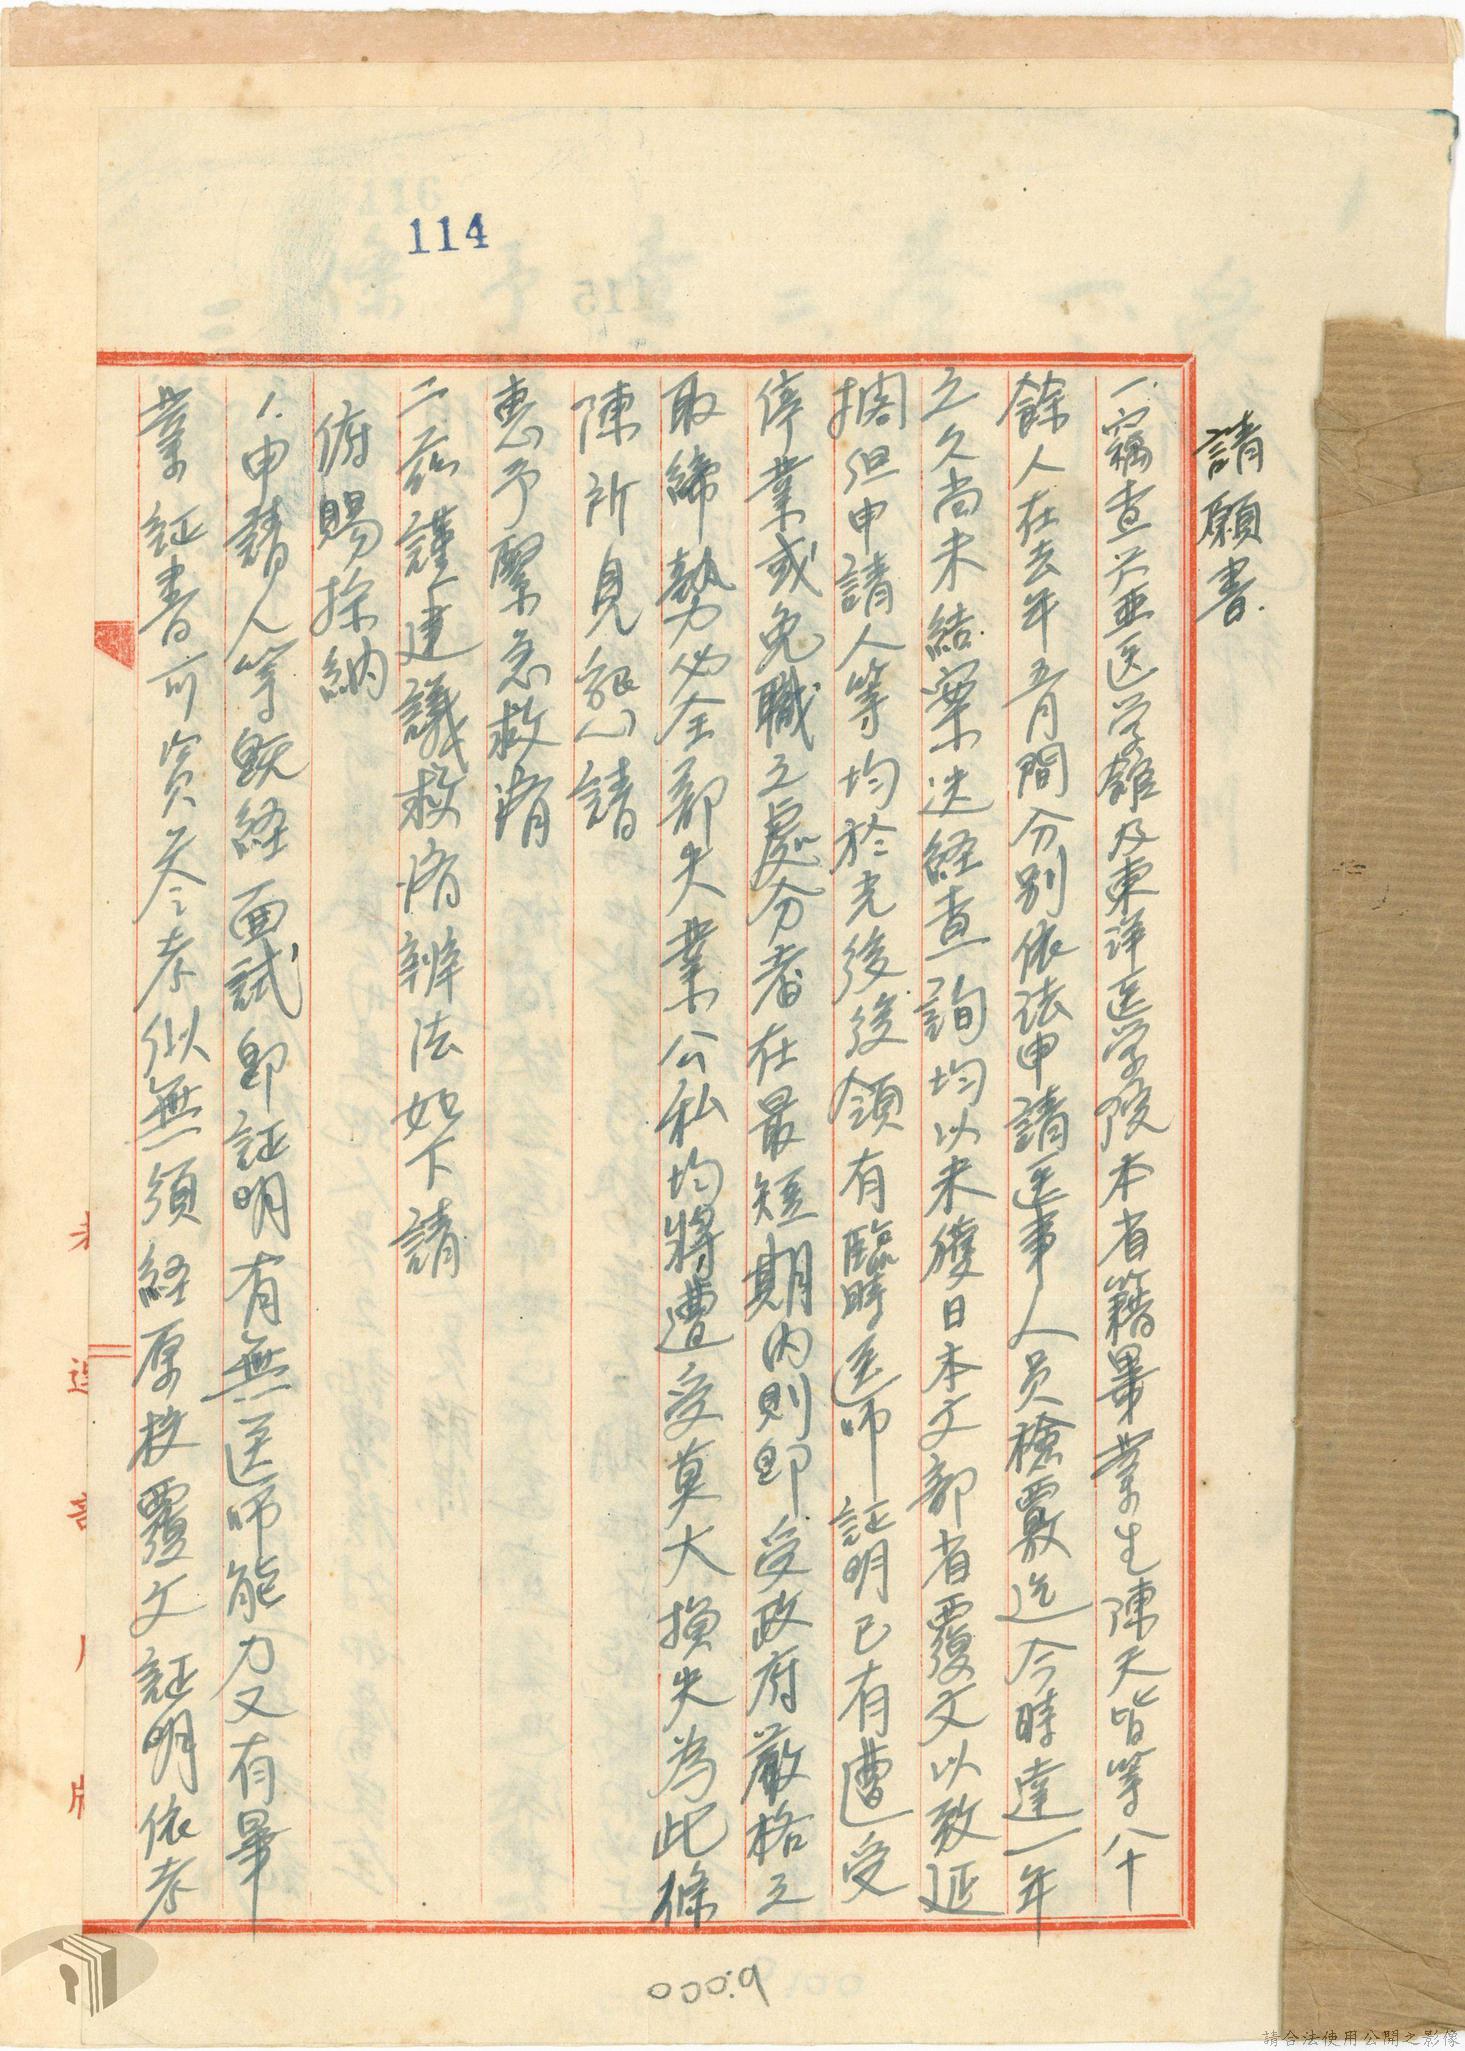 114
請願書
一、竊查兴亜医学舘及東洋医学院本省籍畢業生陳天皆等八十
餘人在去年五月間分別依法申請医事人員檢覈迄今時達一年
之久尚未結案迭経查詢均以未獲日本文部省覆文以致延
擱但申請人等均於先後後領有臨時医師証明已有遭受
停業或免職之處分者在最短期內則即受政府嚴格之
取締勢必全部失業公私均將遭受莫大損失為此條
陳所見懇請
惠予緊急救濟
二、茲謹建議救濟辦法如下請
俯賜採納
1.申請人等既経面試即証明有無医師能力又有畢
業証書可資參考似無須経原校覆文証明依考
000.9
請合法使用公開之影像